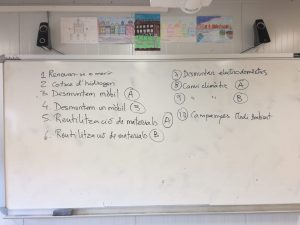 1 Renovar-se o morir
2 Cotxes d'hidrogen
3. Desmuntem mòbil A
4. Desmuntem un mòbil B
5. Reutilització de materials A
6. Reutilització de materials B
7. Desmuntem electrodomèstics
8. Canvi climàtic A
9 " " B
10 Campanyes Medi Ambient